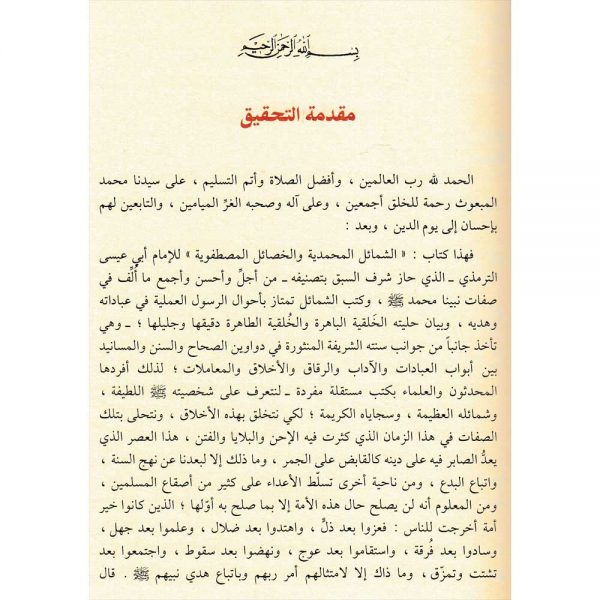 بسم الله الرحمن الرحيم
مقدمة التحقيق
الحمد لله رب العالمين ، وأفضل الصلاة وأتم التسليم ، على سيدنا محمد
المبعوث رحمة للخلق أجمعين ، وعلى آله وصحبه الغرّ الميامين ، والتابعين لهم
بإحسان إلى يوم الدين ، وبعد :
فهذا كتاب : « الشمائل المحمدية والخصائل المصطفوية » للإمام أبي عيسى
الترمذي ـ الذي حاز شرف السبق بتصنيفه ـ من أجلِّ وأحسن وأجمع ما أُلِّف في
صفات نبينا محمد ﷺ ، وكتب الشمائل تمتاز بأحوال الرسول العملية في عباداته
وهديه ، وبيان حليته الخَلقية الباهرة والخُلقية الطاهرة دقيقها وجليلها ؛ ـ وهي
تأخذ جانباً من جوانب سنته الشريفة المنثورة في دواوين الصحاح والسنن والمسانيد
بين أبواب العبادات والآداب والرقاق والأخلاق والمعاملات ؛ لذلك أفردها
المحدثون والعلماء بكتب مستقلة مفردة ـ لنتعرف على شخصيته ﷺ اللطيفة ،
وشمائله العظيمة ، وسجاياه الكريمة ؛ لكي نتخلق بهذه الأخلاق ، ونتحلى بتلك
الصفات في هذا الزمان الذي كثرت فيه الإحن والبلايا والفتن ، هذا العصر الذي
يعدُّ الصابر فيه على دينه كالقابض على الجمر ، وما ذلك إلا لبعدنا عن نهج السنة ،
واتباع البدع ، ومن ناحية أخرى تسلّط الأعداء على كثير من أصقاع المسلمين ،
ومن المعلوم أنه لن يصلح حال هذه الأمة إلا بما صلح به أوّلها ؛ الذين كانوا خير
أمة أخرجت للناس : فعزوا بعد ذلٍّ ، واهتدوا بعد ضلال ، وعلموا بعد جهل ،
وسادوا بعد فُرقة ، واستقاموا بعد عوج ، ونهضوا بعد سقوط ، واجتمعوا بعد
تشتت وتمزّق ، وما ذاك إلا لامتثالهم أمر ربهم وباتباع هدي نبيهم ﷺ . قال